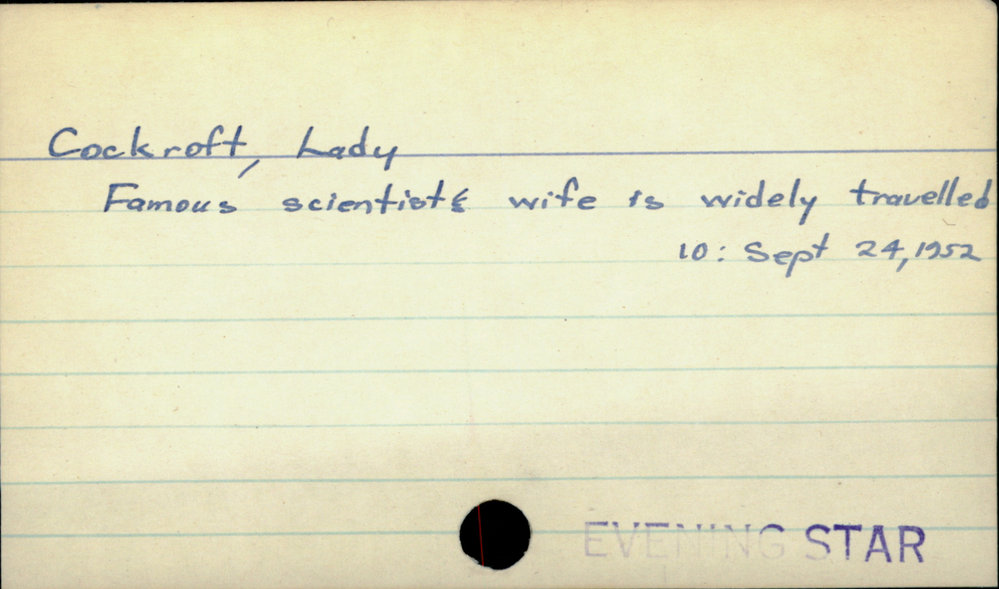 Cockroft, Lady
Famous scientists wife is widely travelled
10: Sept 24, 1952
EVENING STAR